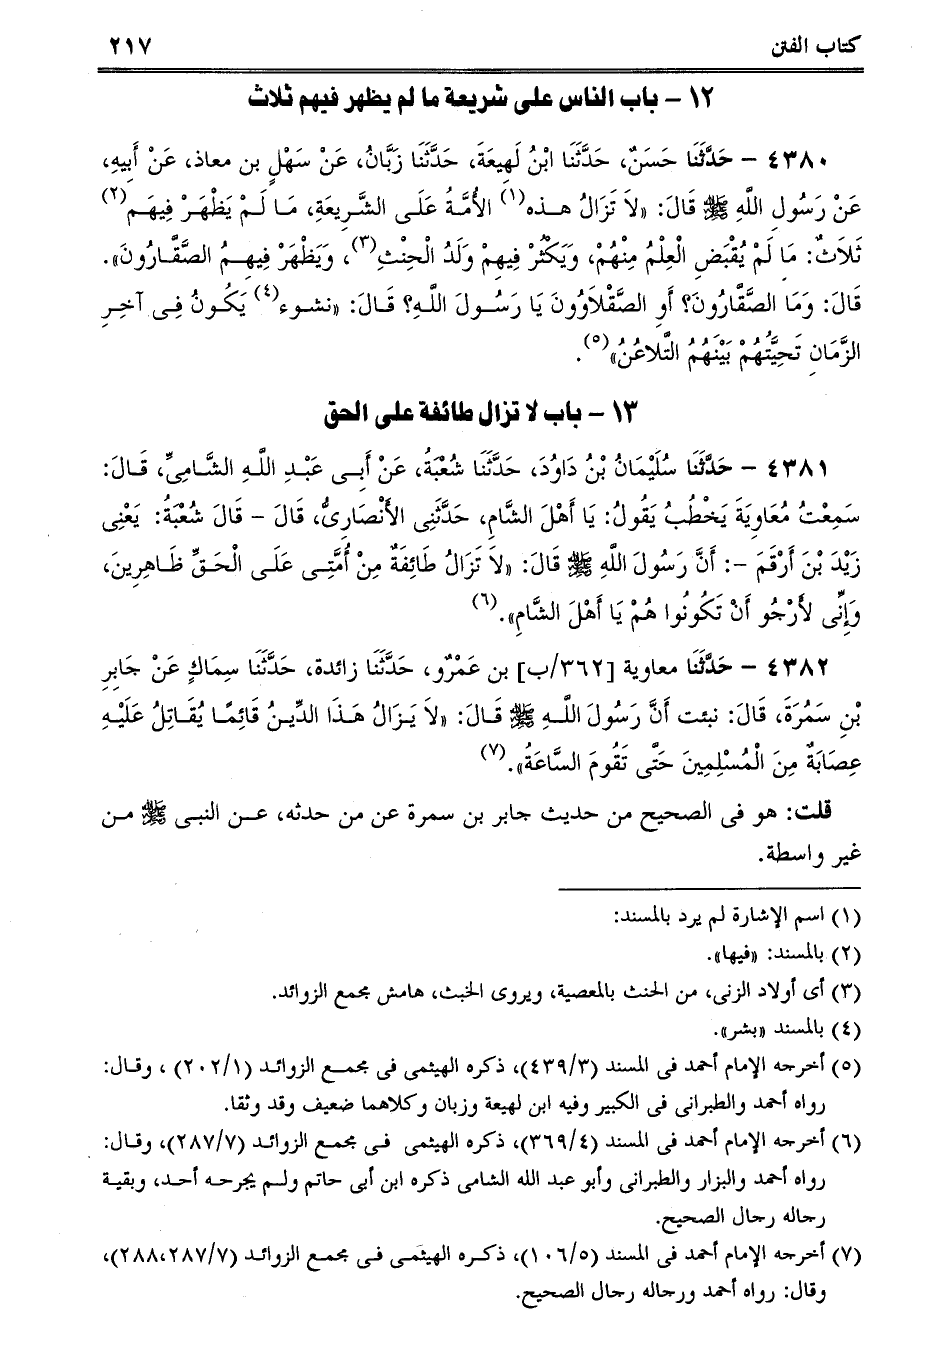 كتاب الفتن ٢١٧
١٢ - باب الناس على شريعة ما لم يظهر فيهم ثلاث
٤٣٨٠ - حَدَّثَنَا حَسَنٌ، حَدَّثَنَا ابْنُ لَهِيعَةَ، حَدَّثَنَا زَبَّانُ، عَنْ سَهْلِ بن معاذ، عَنْ أَبِيهِ،
عَنْ رَسُولِ اللَّهِ ﷺ قَالَ: «لاَ تَزَالُ هـذه(١) الأُمَّةُ عَلَى الشَّرِيعَةِ، مَا لَمْ يَظْهَرْ فِيهِم(٢)
ثَلاَثٌ: مَا لَمْ يُقْبَضِ الْعِلْمُ مِنْهُمْ، وَيَكْثُرْ فِيهِمْ وَلَدُ الْحِنْثِ(٣)، وَيَظْهَرْ فِيهِمُ الصَّقَّارُونَ».
قَالَ: وَمَا الصَّقَّارُونَ؟ أَوِ الصَّقْلاَوُونَ يَا رَسُولَ اللَّهِ؟ قَالَ: «نشوء(٤) يَكُونُ فِى آخِرِ
الزَّمَانِ تَحِيَّتُهُمْ بَيْنَهُمُ التَّلاَعُنُ»(٥).
١٣ - باب لا تزال طائفة على الحق
٤٣٨١ - حَدَّثَنَا سُلَيْمَانُ بْنُ دَاوُدَ، حَدَّثَنَا شُعْبَةُ، عَنْ أَبِى عَبْدِ اللَّهِ الشَّامِىِّ، قَالَ:
سَمِعْتُ مُعَاوِيَةَ يَخْطُبُ يَقُولُ: يَا أَهْلَ الشَّامِ، حَدَّثَنِى الأَنْصَارِىُّ، قَالَ - قَالَ شُعْبَةُ: يَعْنِى
زَيْدَ بْنَ أَرْقَمَ -: أَنَّ رَسُولَ اللَّهِ ﷺ قَالَ: «لاَ تَزَالُ طَائِفَةٌ مِنْ أُمَّتِى عَلَى الْحَقِّ ظَاهِرِينَ،
وَإِنِّى لأَرْجُو أَنْ تَكُونُوا هُمْ يَا أَهْلَ الشَّامِ».(٦)
٤٣٨٢ - حَدَّثَنَا معاوية [٣٦٢/ب] بن عَمْرٌو، حَدَّثَنَا زائدة، حَدَّثَنَا سِمَاكٍ عَنْ جَابِرِ
بْنِ سَمُرَةَ، قَالَ: نبئت أَنَّ رَسُولَ اللَّهِ ﷺ قَالَ: «لاَ يَزَالُ هَذَا الدِّينُ قَائِمًا يُقَاتِلُ عَلَيْهِ
عِصَابَةٌ مِنَ الْمُسْلِمِينَ حَتَّى تَقُومَ السَّاعَةُ».(٧)
قلت: هو فى الصحيح من حديث جابر بن سمرة عن من حدثه، عن النبى ﷺ من
غير واسطة.
(١) اسم الإشارة لم يرد بالمسند:
(٢) بالمسند: «فيها».
(٣) أى أولاد الزنى، من الحنث بالمعصية، ويروى الخبث، هامش مجمع الزوائد.
(٤) بالمسند «بشر».
(٥) أخرجه الإمام أحمد فى المسند (٤٣٩/٣)، ذكره الهيثمى فى مجمع الزوائد (٢٠٢/١) ، وقال:
رواه أحمد والطبرانى فى الكبير وفيه ابن لهيعة وزبان وكلاهما ضعيف وقد وثقا.
(٦) أخرجه الإمام أحمد فى المسند (٣٦٩/٤)، ذكره الهيثمى فى مجمع الزوائد (٢٨٧/٧)، وقال:
رواه أحمد والبزار والطبرانى وأبو عبد الله الشامى ذكره ابن أبى حاتم ولم يجرحه أحد، وبقية
رجاله رجال الصحيح.
(٧) أخرجه الإمام أحمد فى المسند (١٠٦/٥)، ذكره الهيثمى فى مجمع الزوائد (٢٨٨،٢٨٧/٧)،
وقال: رواه أحمد ورجاله رجال الصحيح.